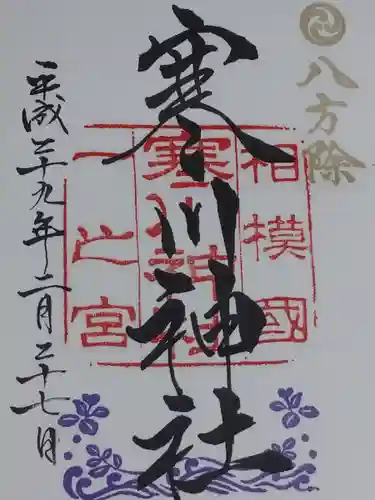 八方除
寒川神社
相模國
一之宮
寒川神社
平成二十九年二月二十七日